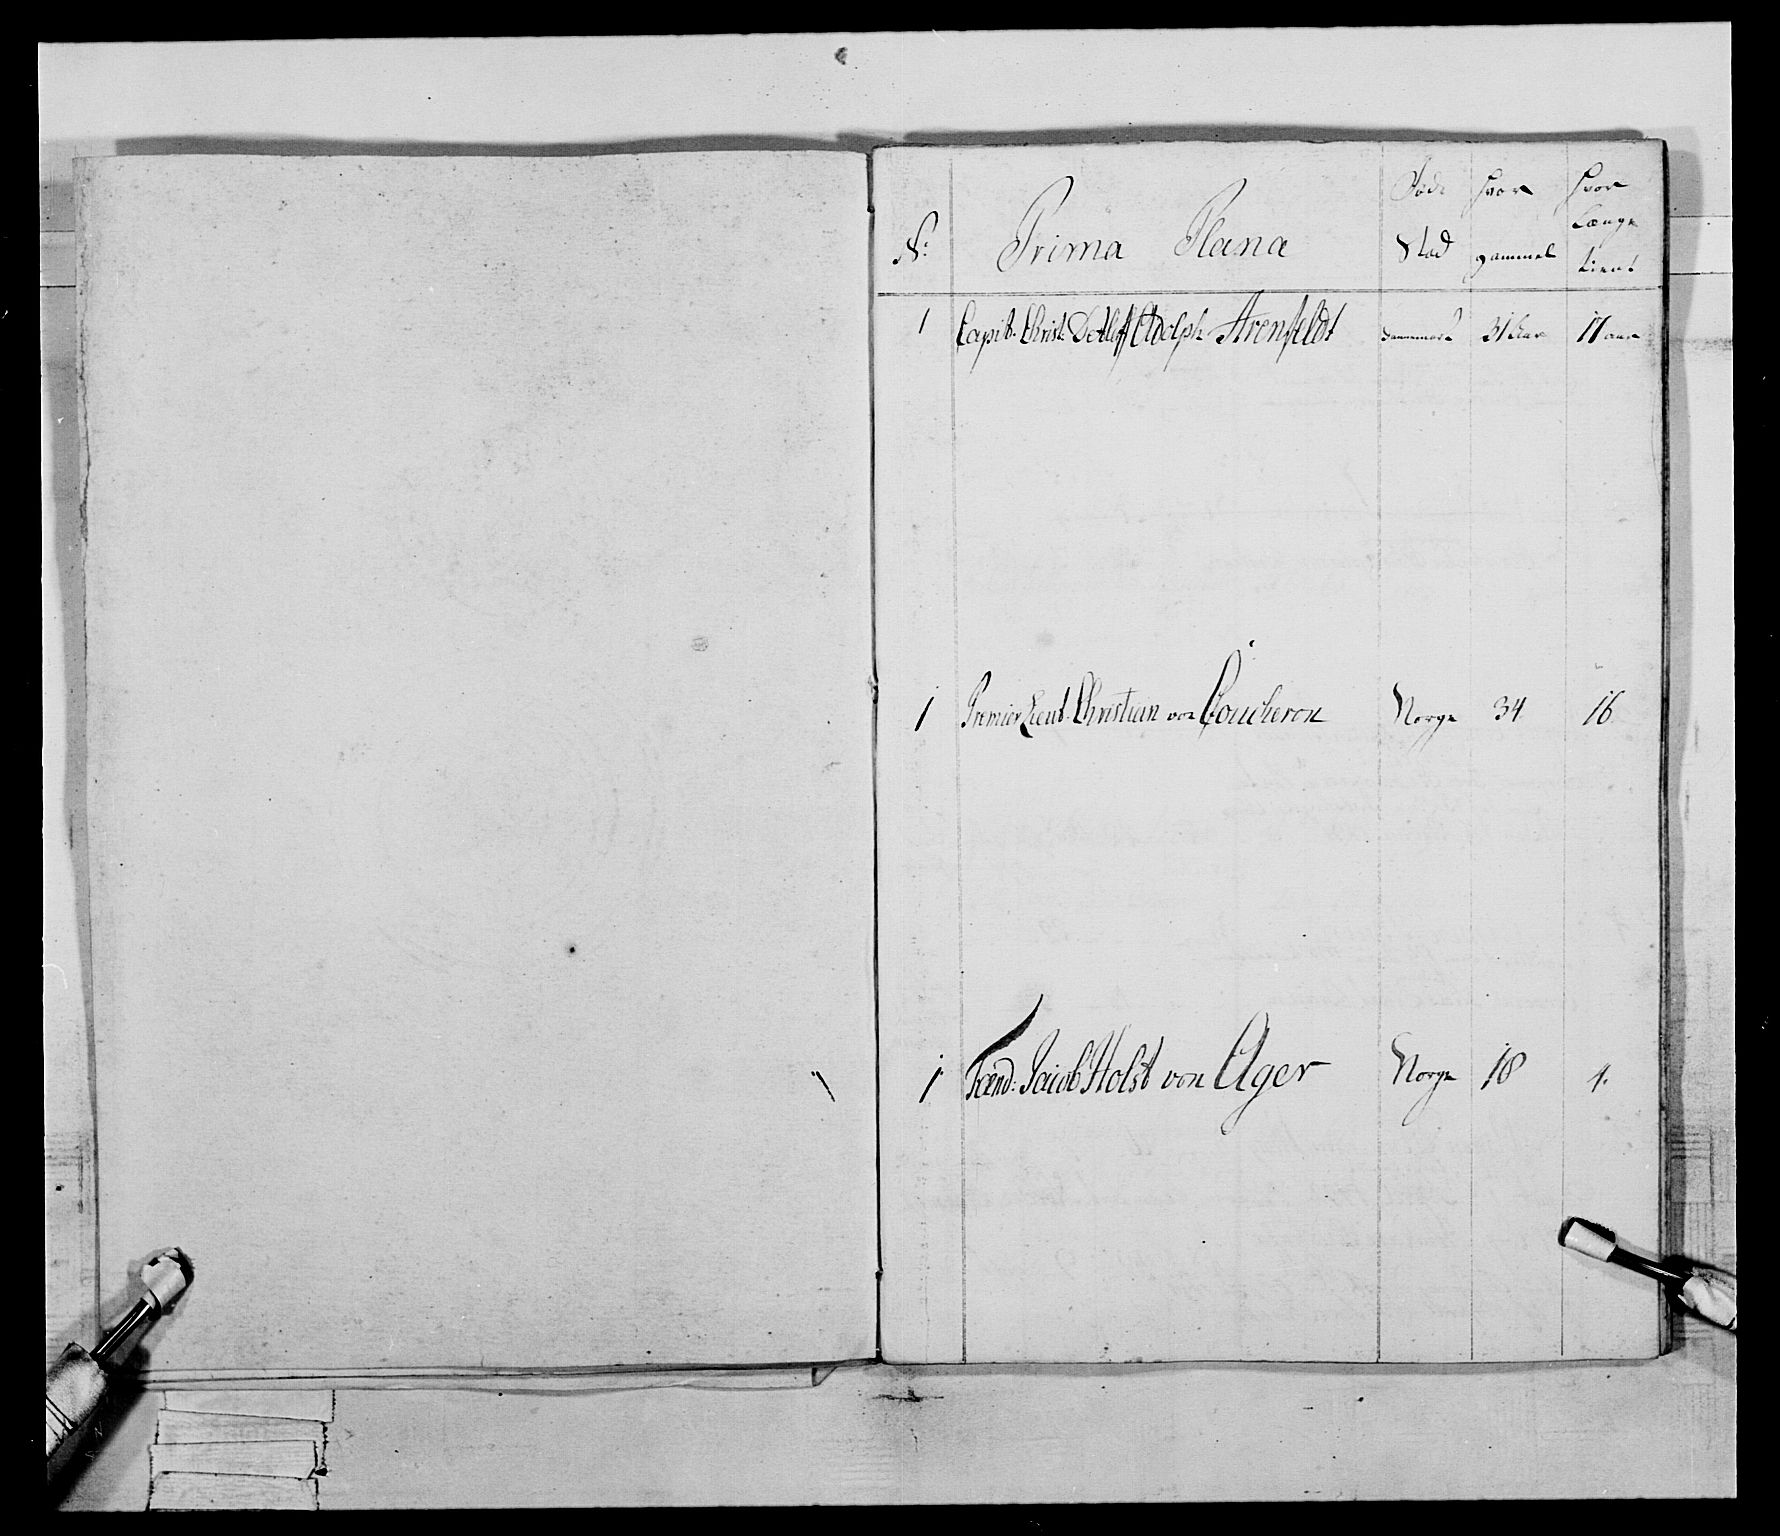 N: Prima Plana Føde Stad hvor gammel hvor Længe tient
1 Capit. Christ. Detleff Adolph Arenfeldt Dannemark 31 Aar 17 aar
1 Premier Lieut. Christian von Coucheron Norge 34 16
1 Fænd: Jacob Holst von Ager Norge 18 4.